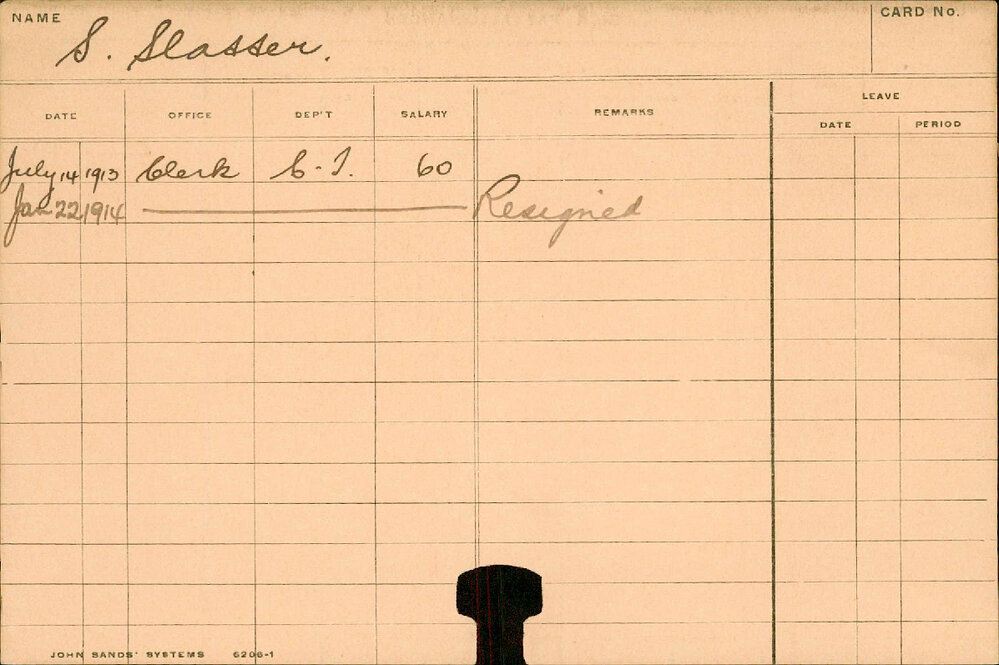 NAME
S. Slasser.
CARD No.
DATE OFFICE DEP'T SALARY REMARKS LEAVE
DATE PERIOD
July 14 1913 Clerk C. I. 60
Jan 22 1914 Resigned
JOHN SANDS' SYSTEMS 6206-1